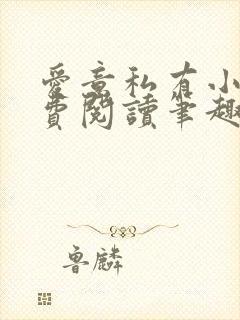 愛意私有小
費閱讀筆趣
魯麟